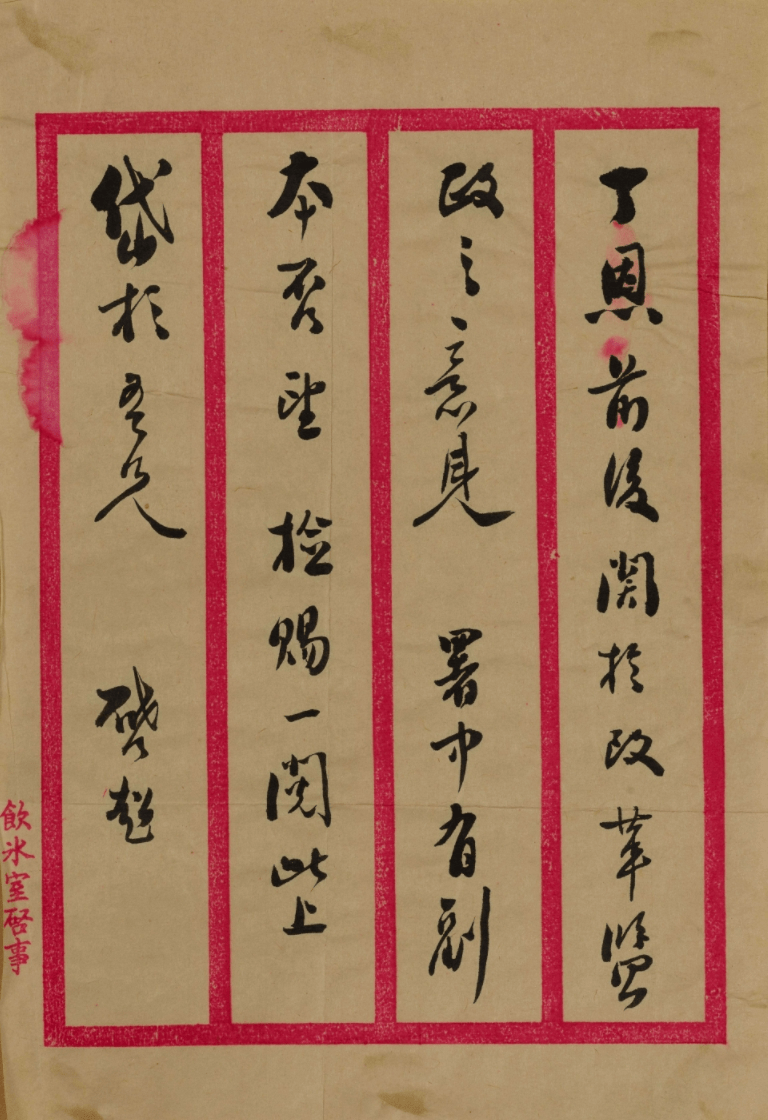 丁恩前後關於改革鹽
政之意見 署中有副
本否望 檢賜一閱此上
岱杉吾兄
啓超
飲冰室啓事